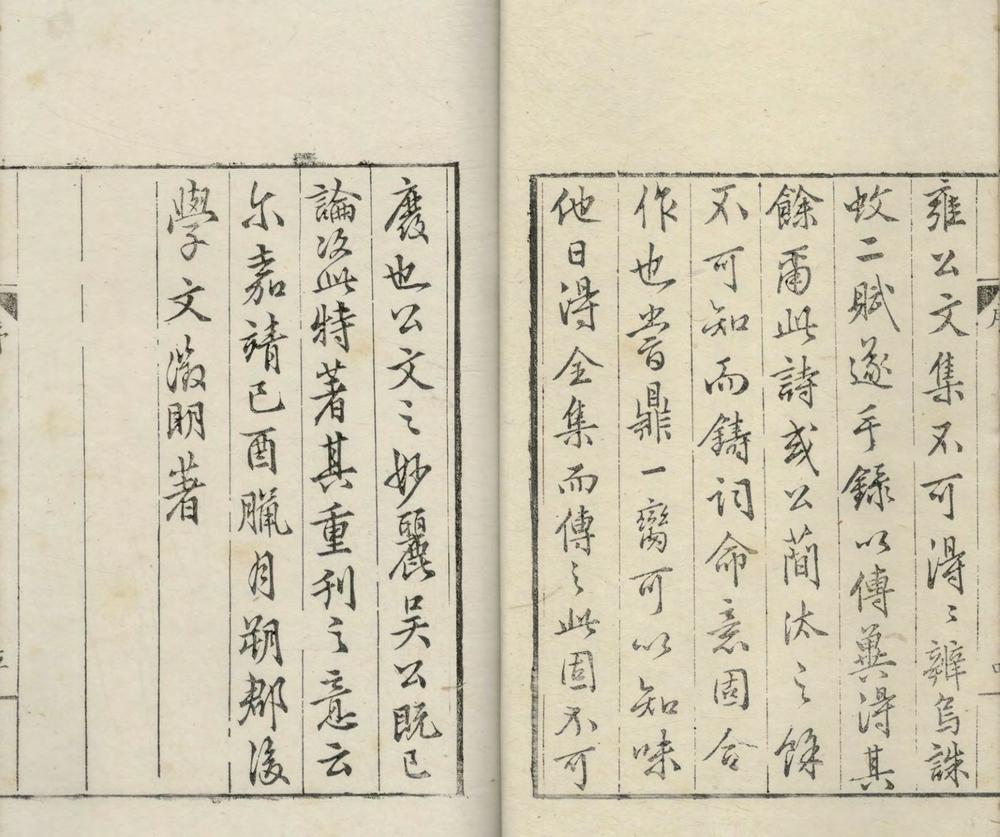 雍公文集不可得〻辨烏誅
蚊二賦遂手錄以傳冀得其
餘爾此詩或公蕳汰之餘
不可知而鑄詞命意固合
作也嘗鼎一臠可以知味
他日得全集而傳之此固不可
廢也公文之妙麗吳公既已
論次此特著其重刊之意云
尓嘉靖己酉臘月朔郡後
學文徵明著